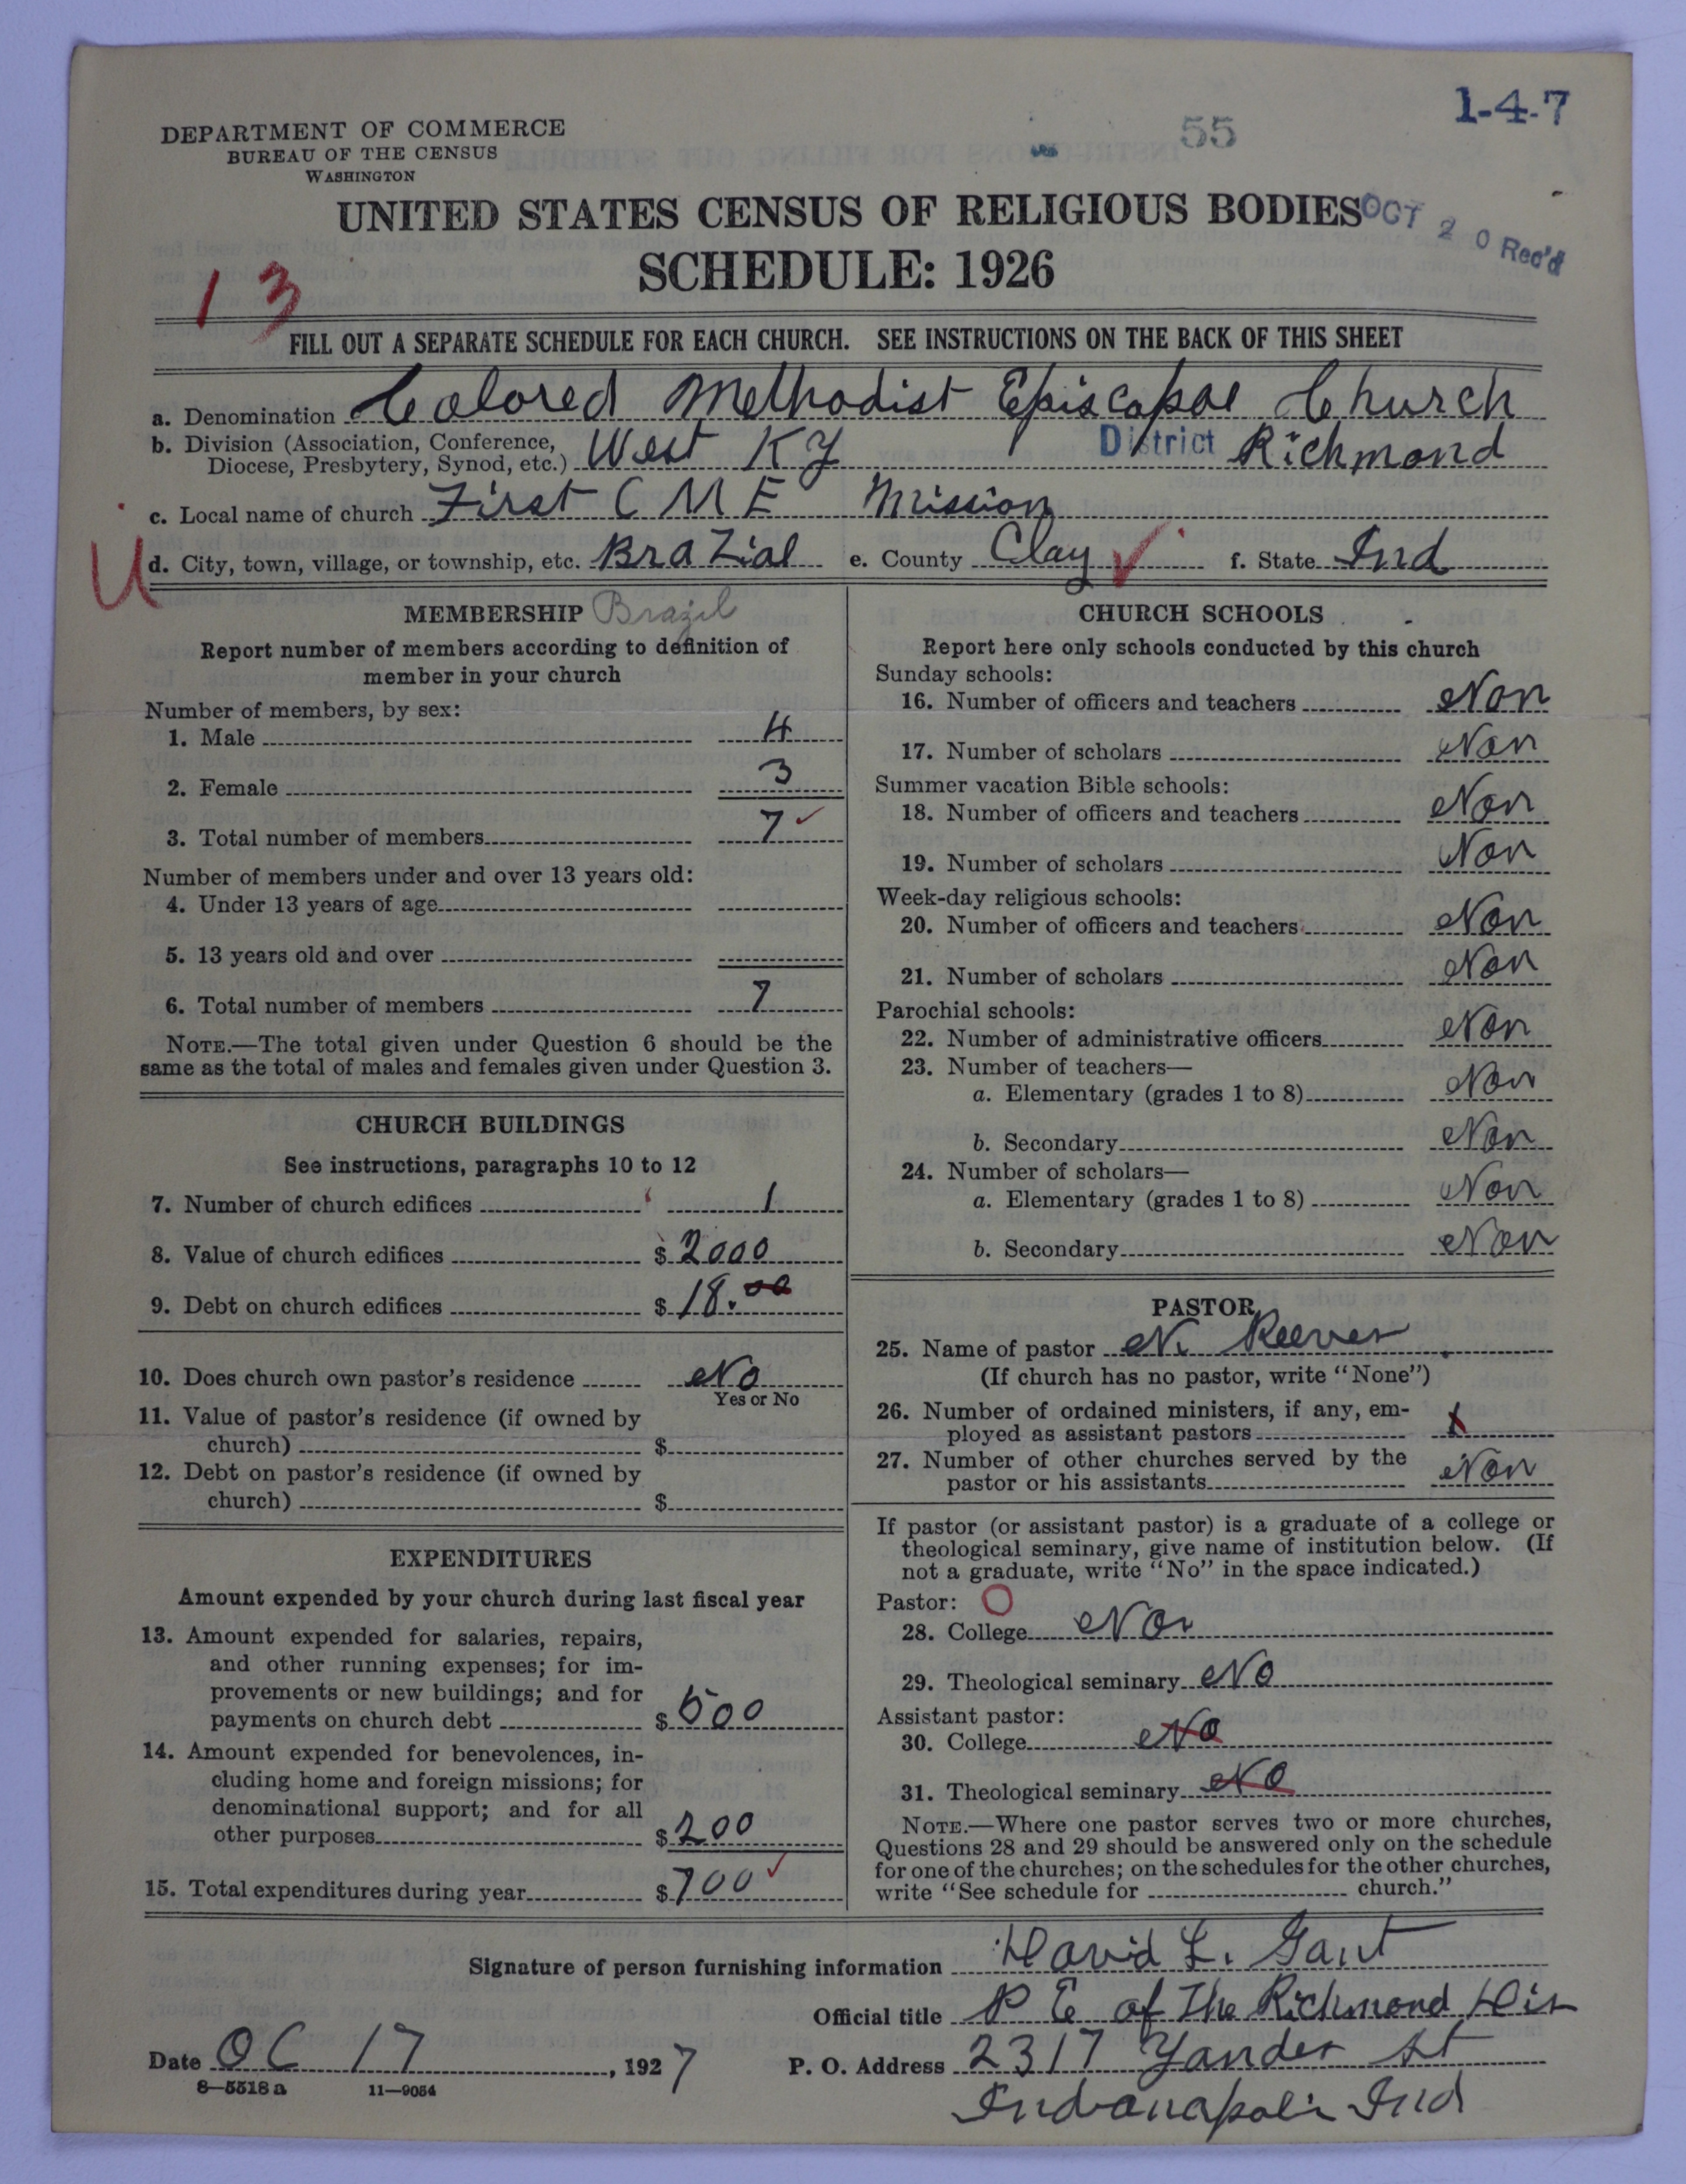 1-4-7
55
DEPARTMENT OF COMMERCE
BUREAU OF THE CENSUS
WASHINGTON
UNITED STATES CENSUS OF RELIGIOUS BODIES
OCT 20 Rec'd
SCHEDULE: 1926
13
FILL OUT A SEPARATE SCHEDULE FOR EACH CHURCH. SEE INSTRUCTIONS ON THE BACK OF THIS SHEET
a. Denomination Colored Methodist Episcopal Church
b. Division (Association, Conference, Diocese, Presbytery, Synod, etc.) West KY District Richmond
c. Local name of church First C M E Mission
U
d. City, town, village, or township, etc. BraZial e. County Clay f. State Ind
MEMBERSHIP Brazil
Report number of members according to definition of
member in your church
Number of members, by sex:
1. Male 4
2. Female 3
3. Total number of members 7
Number of members under and over 13 years old:
4. Under 13 years of age
5. 13 years old and over
6. Total number of members 7
NOTE.—The total given under Question 6 should be the
same as the total of males and females given under Question 3.
CHURCH BUILDINGS
See instructions, paragraphs 10 to 12
7. Number of church edifices 1
8. Value of church edifices $ 2000
9. Debt on church edifices $ 18.00
10. Does church own pastor's residence No
Yes or No
11. Value of pastor's residence (if owned by
church) $
12. Debt on pastor's residence (if owned by
church) $
EXPENDITURES
Amount expended by your church during last fiscal year
13. Amount expended for salaries, repairs,
and other running expenses; for im-
provements or new buildings; and for
payments on church debt $ 500
14. Amount expended for benevolences, in-
cluding home and foreign missions; for
denominational support; and for all
other purposes $ 200
15. Total expenditures during year $ 700
CHURCH SCHOOLS
Report here only schools conducted by this church
Sunday schools:
16. Number of officers and teachers Non
17. Number of scholars Non
Summer vacation Bible schools:
18. Number of officers and teachers Non
19. Number of scholars Non
Week-day religious schools:
20. Number of officers and teachers Non
21. Number of scholars Non
Parochial schools:
22. Number of administrative officers Non
23. Number of teachers—
a. Elementary (grades 1 to 8) Non
b. Secondary Non
24. Number of scholars—
a. Elementary (grades 1 to 8) Non
b. Secondary Non
PASTOR
25. Name of pastor N. Reeves
(If church has no pastor, write "None")
26. Number of ordained ministers, if any, em-
ployed as assistant pastors
27. Number of other churches served by the
pastor or his assistants Non
If pastor (or assistant pastor) is a graduate of a college or
theological seminary, give name of institution below. (If
not a graduate, write "No" in the space indicated.)
Pastor: O
28. College Non
29. Theological seminary No
Assistant pastor:
30. College No
31. Theological seminary No
NOTE.—Where one pastor serves two or more churches,
Questions 28 and 29 should be answered only on the schedule
for one of the churches; on the schedules for the other churches,
write "See schedule for church."
Signature of person furnishing information David L. Gant
Official title P E of The Richmond Dis
Date OC 17, 1927 P. O. Address 2317 Yandes St
8—5518a 11—9054
Indianapolis Ind